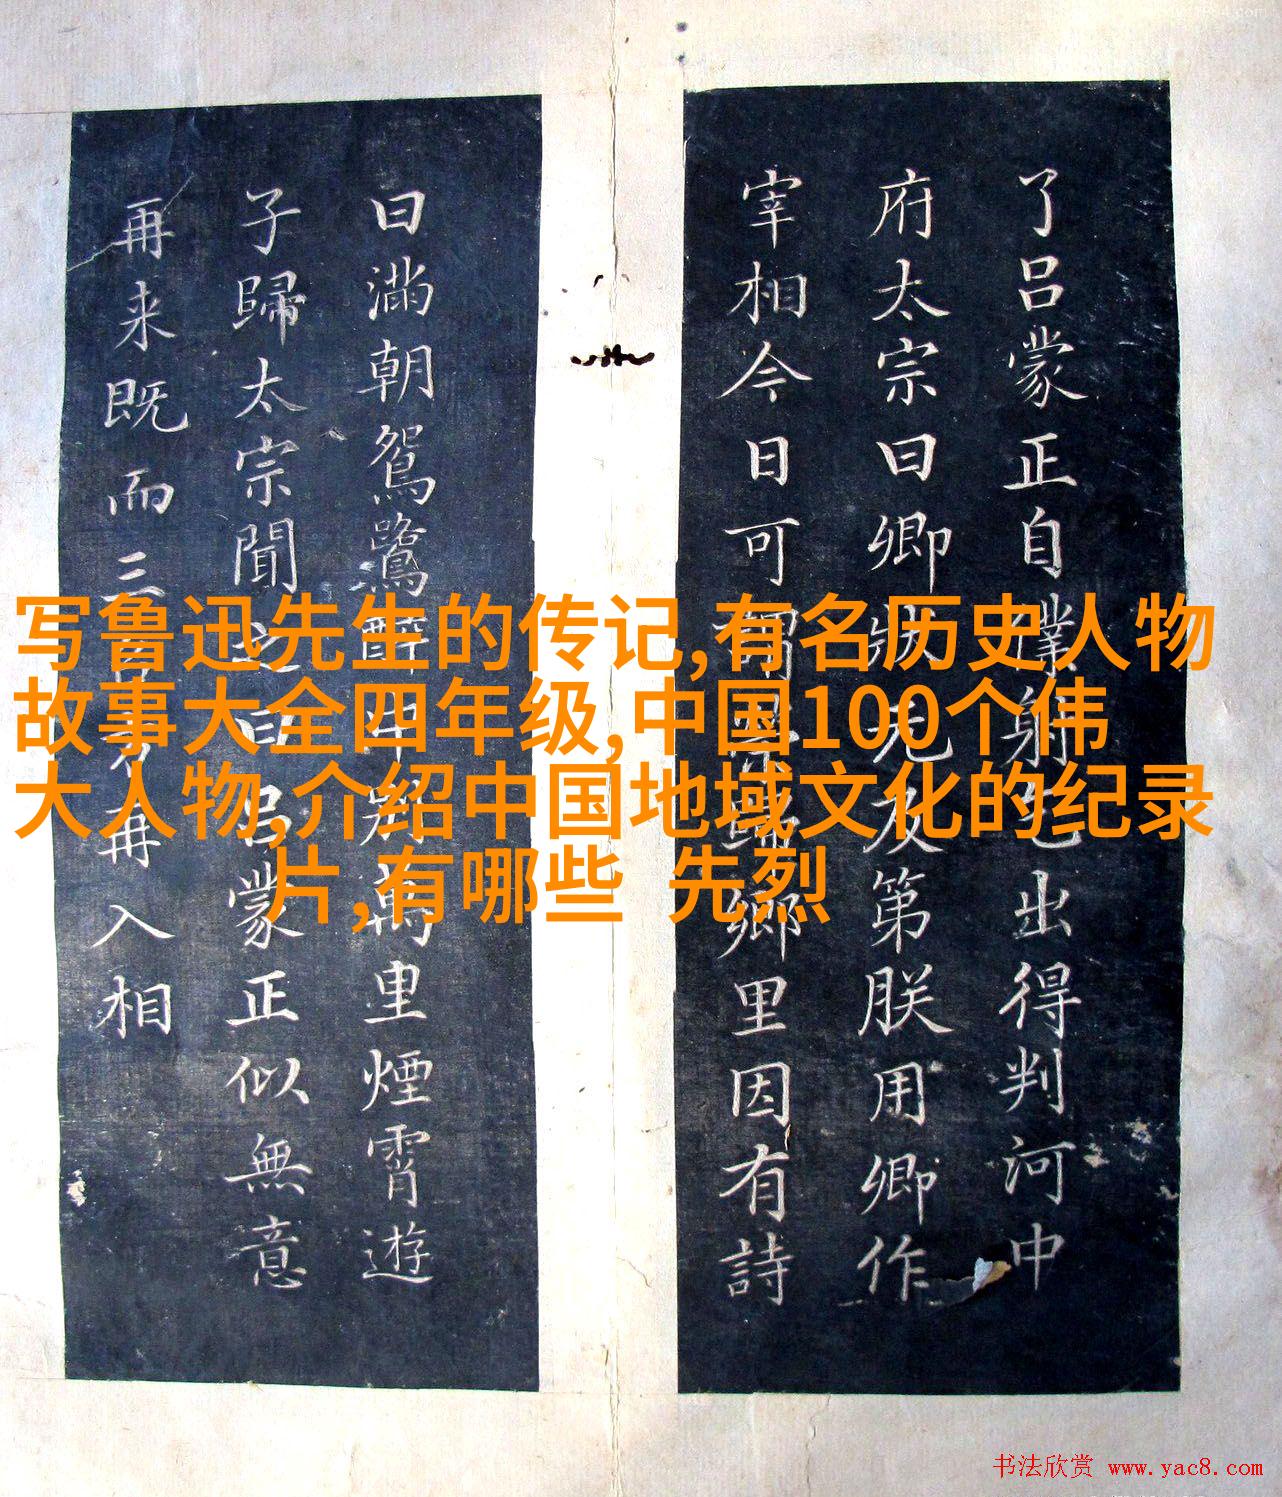 写鲁迅先生的传记,有名历史人物
故事大全四年级,中国100个伟
大人物,介绍中国地域文化的纪录
片,有哪些 先烈
了吕蒙正自僕射乞出得判河中
府太宗曰卿状元及第朕用卿作
宰相今日可謂鄉里因有詩
曰满朝鴛鷺里煙霄遊
子歸太宗聞之曰吕蒙正似無意
再来既而三再入相
书法欣赏 www.yac8.com